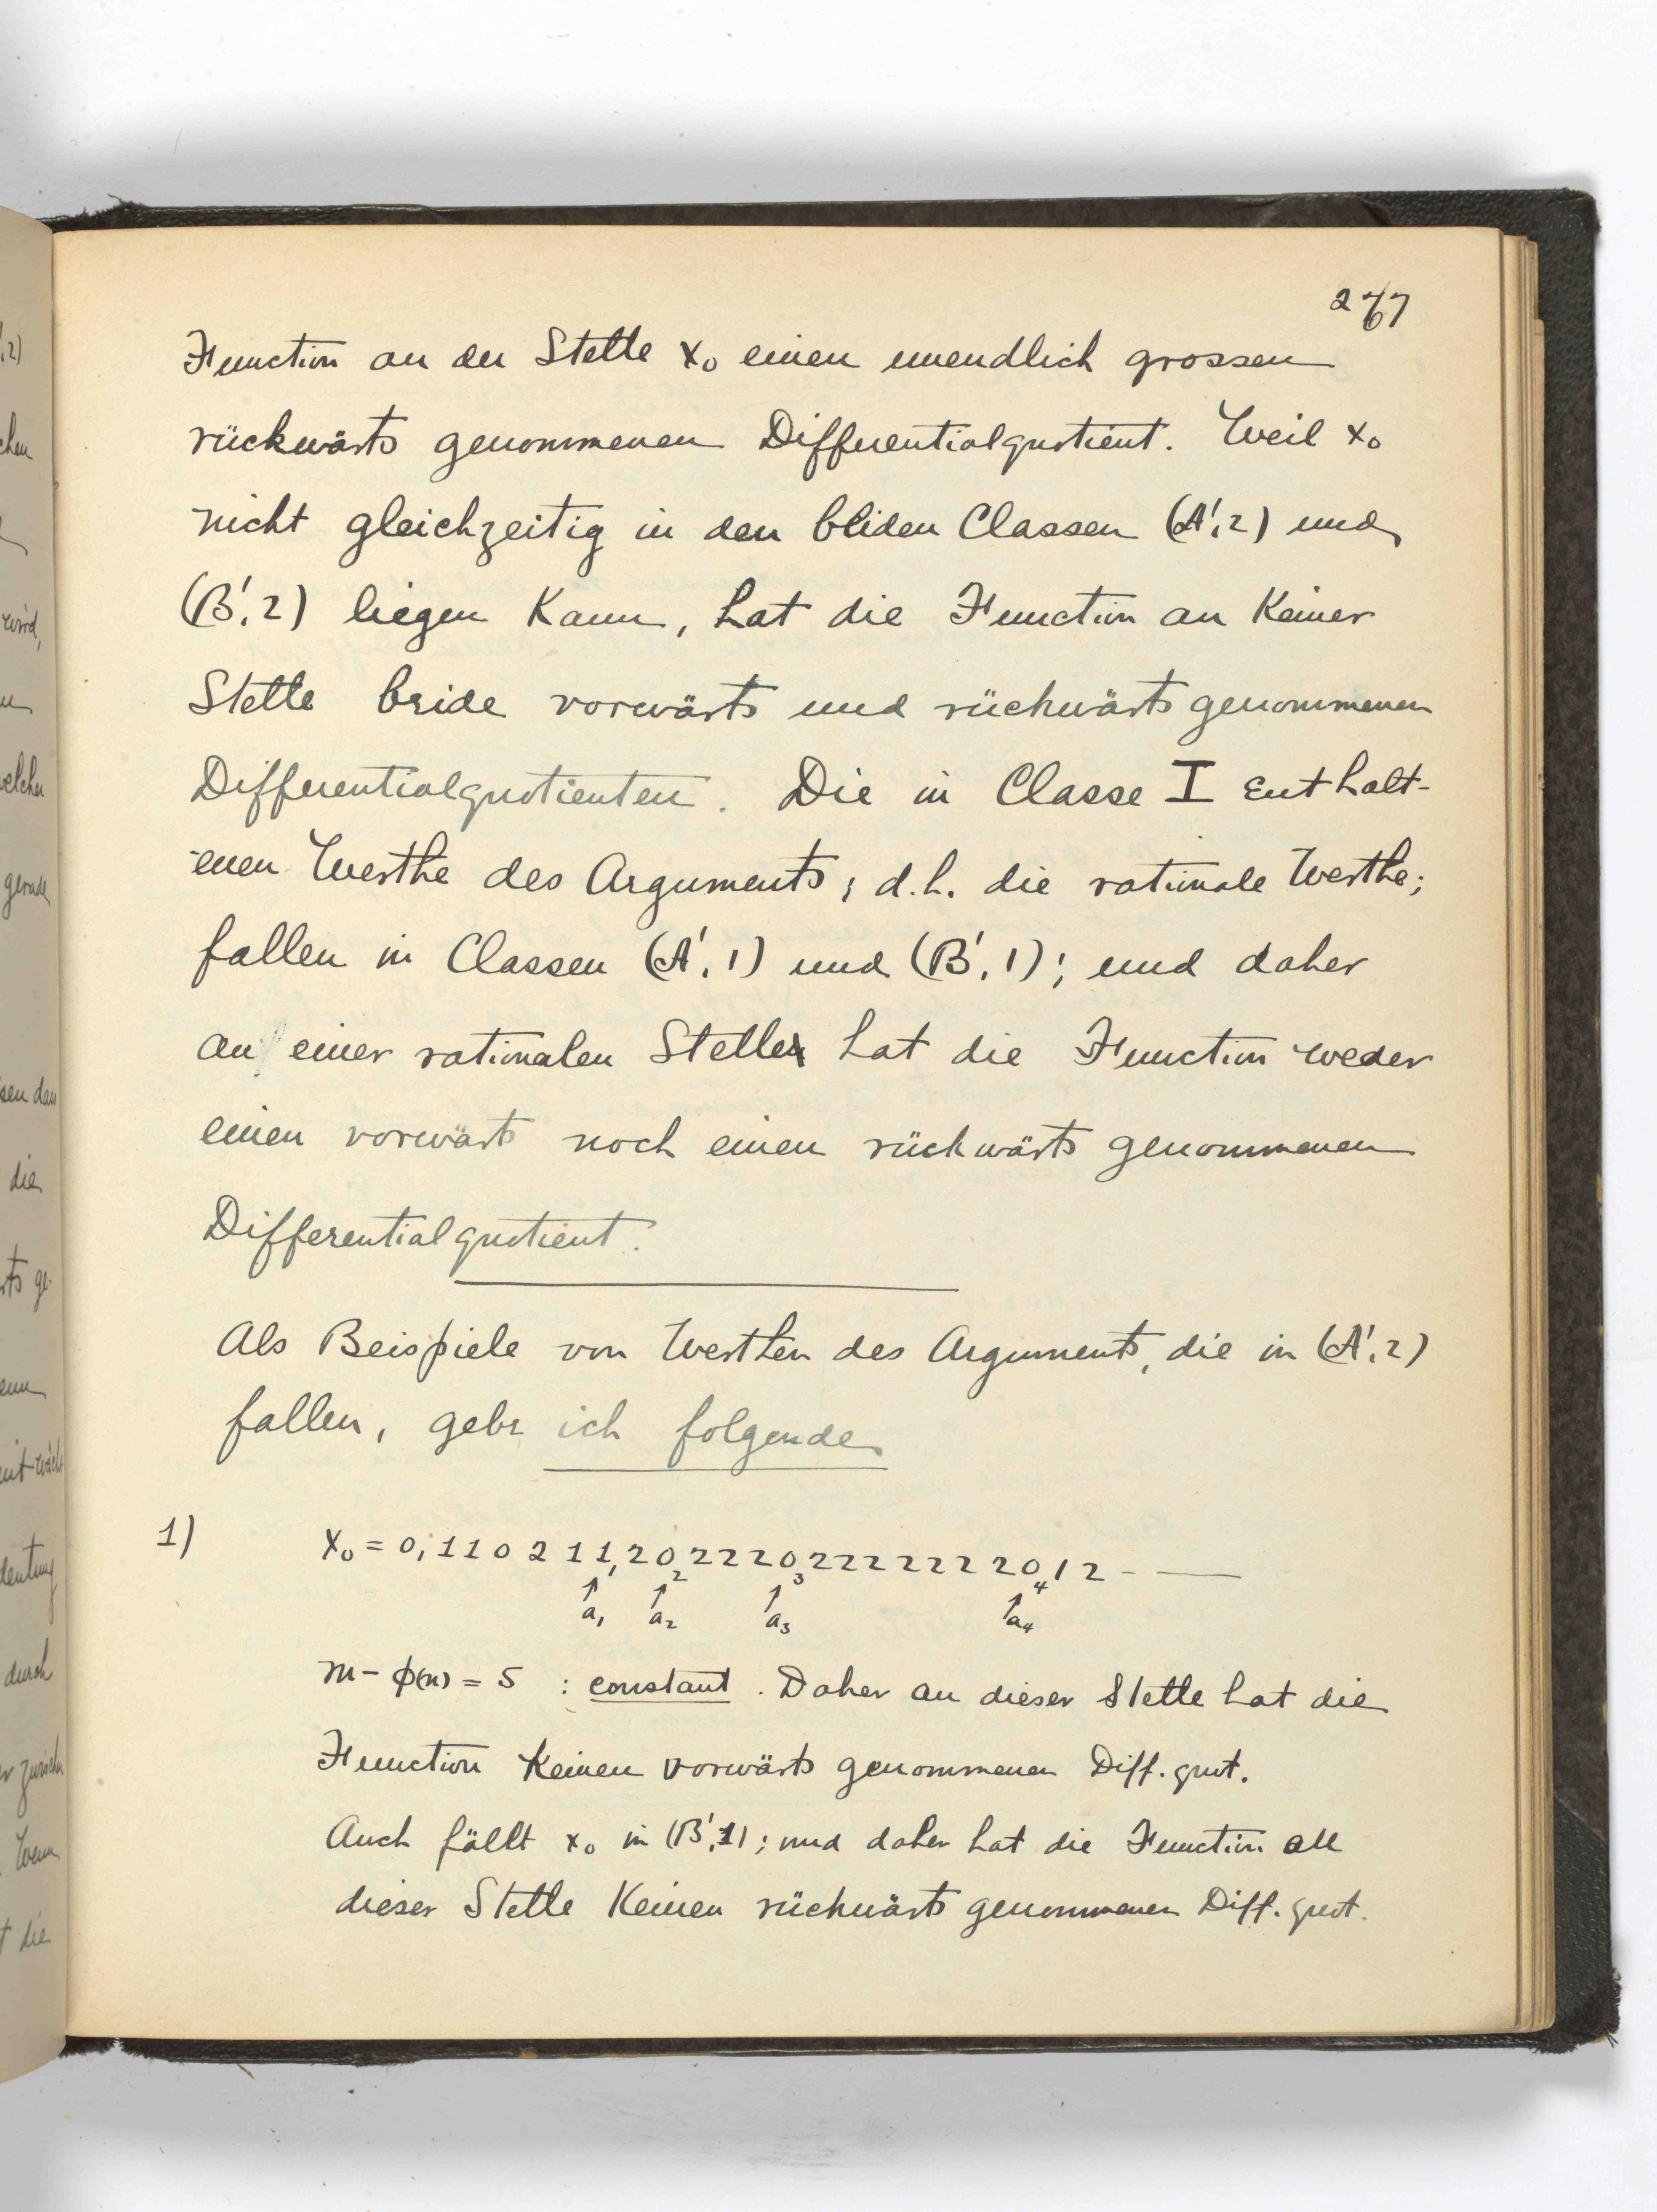 267
Function an der Stelle x₀ einen unendlich grossen
rückwärts genommenen Differentialquotient. Weil x₀
nicht gleichzeitig in den beiden Classen (A', 2) und
(B', 2) liegen kann, hat die Function an keiner
Stelle beide vorwärts und rückwärts genommenen
Differentialquotienten. Die in Classe I enthalt-
enen Werthe des Arguments; d.h. die rationale Werthe;
fallen in Classen (A', 1) und (B', 1); und daher
an einer rationalen Stelle hat die Function weder
einen vorwärts noch einen rückwärts genommenen
Differentialquotient.
Als Beispiele von Werthen des Arguments, die in (A', 2)
fallen, gebe ich folgende
1) x₀ = 0,110211,20222022222222012 - —
1 2 3 4
↑ ↑ ↑ ↑
a₁ a₂ a₃ a₄
m - φ(n) = 5 : constant. Daher an dieser Stelle hat die
Function keinen vorwärts genommenen Diff. quot.
Auch fällt x₀ in (B', 1); und daher hat die Function an
dieser Stelle keinen rückwärts genommenen Diff. quot.